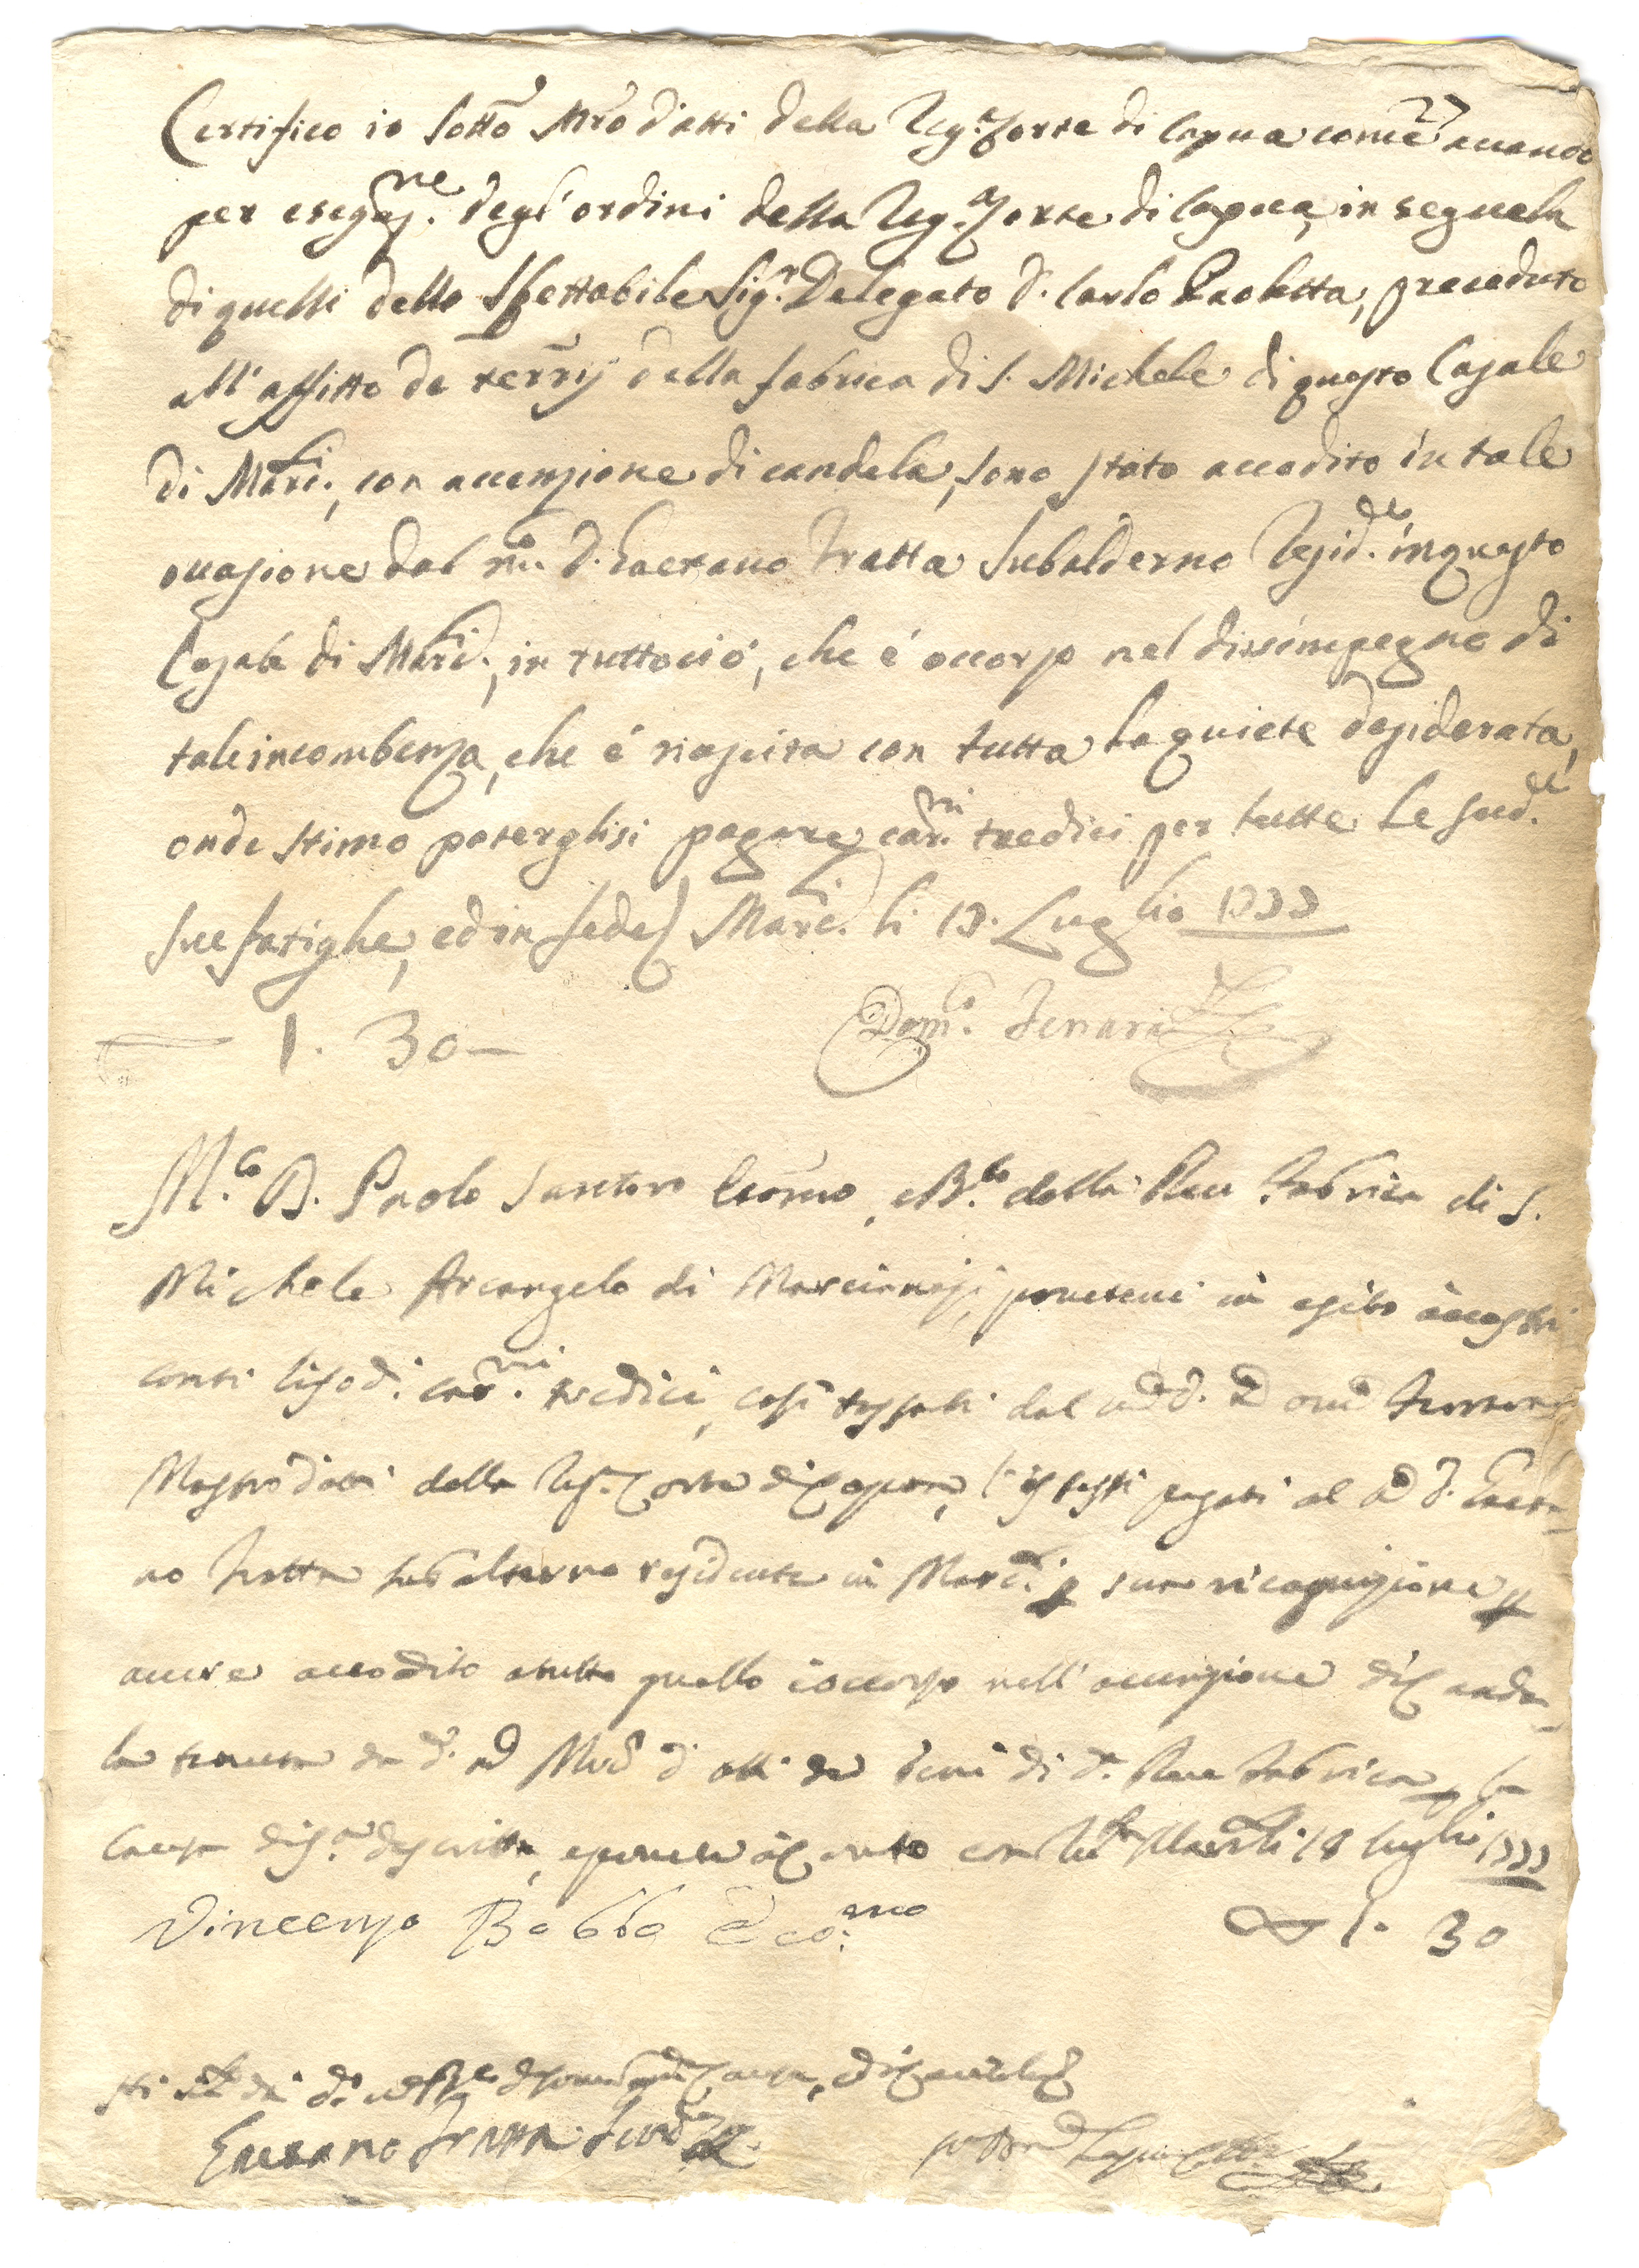 Certifico io sotto Mro d'atti della Reg.a Corte di Capua come avendo
per eseg.ne degl'ordini della Reg.a Corte di Capua, in seguela
di quelli dello Spettabile Sig.r Delegato D. Carlo Paoletta, proceduto
all'affitto de terrij della fabrica di S. Michele di questo Casale
di Marc.i, con accenzione di candela, sono stato accodito in tale
occasione dal m.co D. Gaetano Tratta Subalderno Resid.te in questo
Casale di Marc.i, in tutto ciò, che è occorso nel disimpegno di
tale incombenza, che è riuscita con tutta la quiete desiderata,
onde stimo potergli si pagare car.ni tredici per tutte le sud.e
sue fatighe, ed in fede Marc.i li 17. Luglio 1777
1. 30 —
Dom.co Ferrari
M.co D. Paolo Santoro Econmo, e B.lo della Ven Fabrica di S.
Michele Arcangelo di Marcianisi, ponetevi in esito à vostri
conti li sod.i car.ni tredici, così tassati dal
Mastrodatti della Reg.a Corte di Capua, l'istessi pagati al D. Gaeta-
no Tratta subalterno residente in Marc.i p sua ricognizione p
avere accodito a tutto quello è occorso nell'accenzione di Cande-
la tenuta da d.o Mro d'atti de beni di d.a Ven Fabrica p la
causa di s.a descritta, e ponete à Conto con li 18 luglio 1777
Vincenzo Bobbo Eco:mo
1. 30
Gaetano Tratta